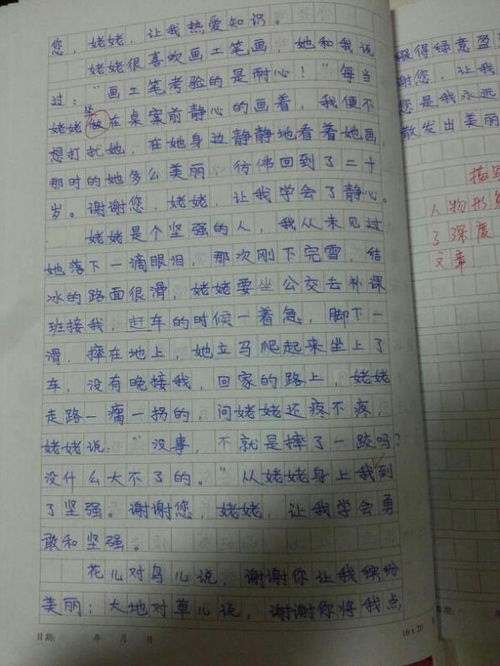 您，姥姥，让我热爱知识。
姥姥很喜欢画工笔画，她和我说
过："画工笔考验的是耐心！"每当
坐
姥姥做在桌案前静心的画着，我便不
想打扰她，在她身边静静地看着她画，
那时的她多么美丽，彷佛回到了二十
岁。谢谢您，姥姥，让我学会了静心。
姥姥是个坚强的人，我从未见过
她落下一滴眼泪，那次刚下完雪，结
冰的路面很滑，姥姥要坐公交去补课
班接我，赶车的时候一着急，脚下一
滑，摔在地上，她立马爬起来坐上了
车，没有晚接我，回家的路上，姥姥
走路一瘸一拐的，问姥姥还疼不疼，
姥姥说："没事，不就是摔了一跤吗？
没什么大不了的。"从姥姥身上我到
了坚强。谢谢您，姥姥，让我学会勇
敢和坚强。
花儿对鸟儿说，谢谢你让我缤纷
美丽；大地对草儿说，谢谢你将我点
日期： 年 月 日
16×20
缀得绿意盈
谢您，让我
您是我永远
散发出美丽
描写
人物形
了深度
文章